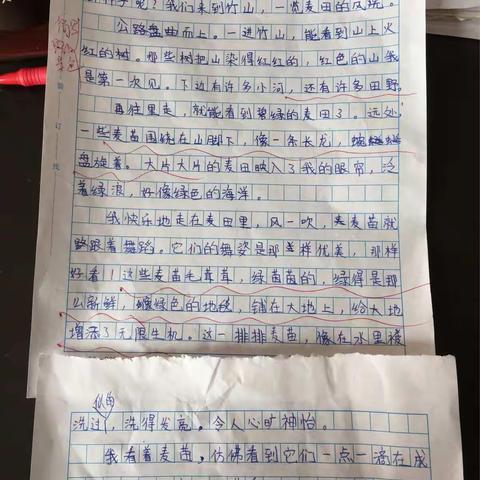 样子呢？我们来到竹山，一览麦田的风光。
公路盘曲而上。一进竹山，能看到山上火
红的树。那些树把山染得红红的，红色的山我
是第一次见。下边有许多小河，还有许多田野。
再往里走，就能看到碧绿的麦田了。远处，
一些麦苗围绕在山脚下，像一条长龙，蜿蜒
盘旋着。大片大片的麦田映入了我的眼帘，泛
着绿浪，好像绿色的海洋。
我快乐地走在麦田里，风一吹，麦苗就
跟着舞蹈。它们的舞姿是那样优美，那样
好看！这些麦苗毛茸茸，绿茵茵的，绿得是那
么新鲜，像绿色的地毯，铺在大地上，给大地
增添了无限生机。这一排排麦苗，像在水里被
洗过似的，洗得发亮。令人心旷神怡。
我看着麦苗，仿佛看到它们一点一滴在成
装订线